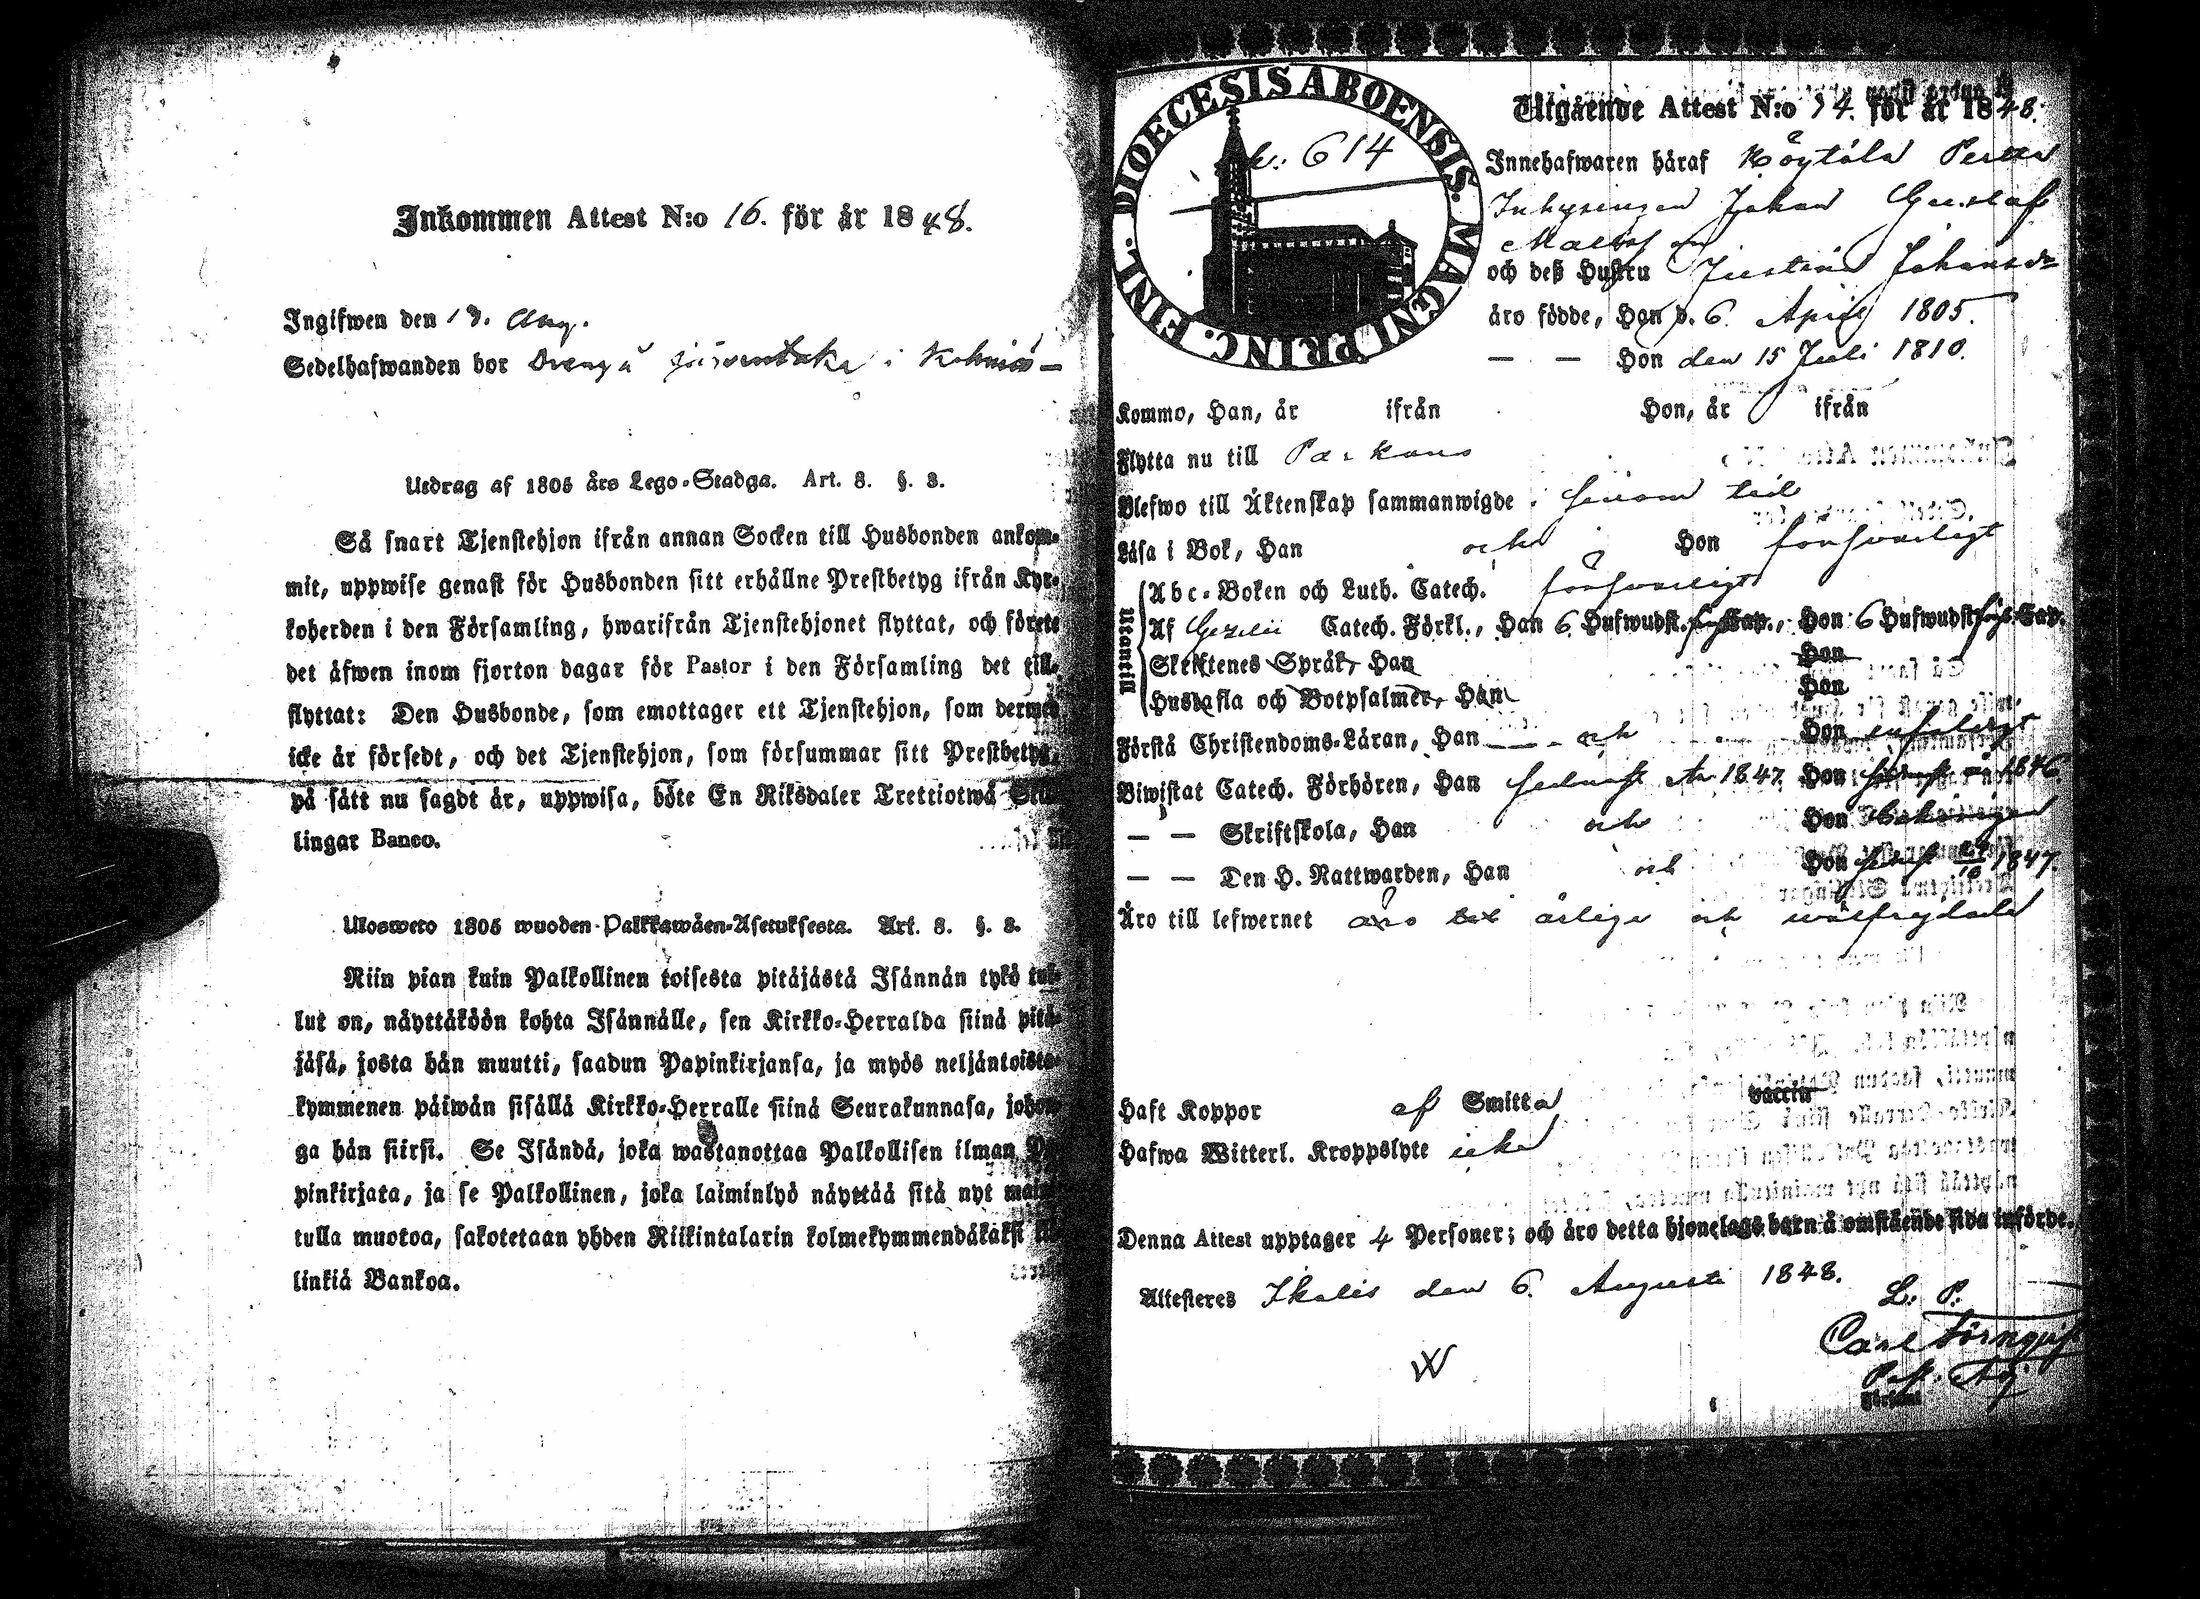 Inkommen Attest N:o 16. för år 1848.
Ingifwen den 13. Aug.
Sedelhafwanden bor i
Utdrag af 1805 års Lego-Stadga. Art. 8. §. 3.
Så snart Tjenstehjon ifrån annan Socken till Husbonden ankom-
mit, uppwise genast för Husbonden sitt erhållne Prestbetyg ifrån Kyr-
koherden i den Församling, hwarifrån Tjenstehjonet flyttat, och förete
det äfwen inom fjorton dagar för Pastor i den Församling det till-
flyttat: Den Husbonde, som emottager ett Tjenstehjon, som dermed
icke är försedt, och det Tjenstehjon, som försummar sitt Prestbetyg,
på sätt nu sagdt är, uppwisa, böte En Riksdaler Trettiotwå Skil-
lingar Banco.
Ulosweto 1805 wuoden Palkkawäen-Asetuksesta. Art. 8. §. 3.
Niin pian kuin Palkollinen toisesta pitäjästä Isännän tykö tul-
lut on, näyttäköön kohta Isännälle, sen Kirkko-Herralda siinä pitä-
jäsä, josta hän muutti, saadun Papinkirjansa, ja myös neljäntoista-
kymmenen päiwän sisällä Kirkko-Herralle siinä Seurakunnasa, johon-
ga hän siirsi. Se Isändä, joka wastanottaa Palkollisen ilman Pa-
pinkirjata, ja se Palkollinen, joka laiminlyö näyttää sitä nyt maini-
tulla muotoa, sakotetaan yhden Riikintalarin kolmekymmendäkaksi kil-
linkiä Bankoa.
DIOECESIS ABOENSIS. MAGNI PRINC. FINL.
614
Utgående Attest N:o 14. för år 1848.
Innehafwaren häraf
Inhysingen Johan Gustaf
och deß Hustru Justina Johansdr
äro födde, Han d. 6. April 1805.
— — Hon den 15 Juli 1810.
Kommo, Han, år ifrån Hon, år ifrån
Flytta nu till Parkano
Blefwo till Äktenskap sammanwigde i tid
Läsa i Bok, Han och Hon förswarligt
Utantill
Abc-Boken och Luth. Catech. förswarligt
Af Gezelii Catech. Förkl., Han 6 Hufwudst. Cap., Hon 6 Hufwudst. Cap.
Skriftenes Språk, Han Hon
Hustafla och Botpsalmer, Han Hon
Förstå Christendoms-Läran, Han — och Hon enfaldigt
Biwistat Catech. Förhören, Han sednast år 1847 Hon sednast år 1846.
— — Skriftskola, Han och Hon
— — Den H. Nattwarden, Han och Hon 1847.
Äro till lefwernet äro ärlige och wälfrejdade
Haft Koppor af Smitta vaccin
Hafwa Witterl. Kroppslyte icke
Denna Attest upptager 4 Personer; och äro detta hjonelags barn å omstående sida införde.
Attesteres Ikalis den 6. Augusti 1848.
L. P.
Carl Törnqvist
Past. Adj.
W